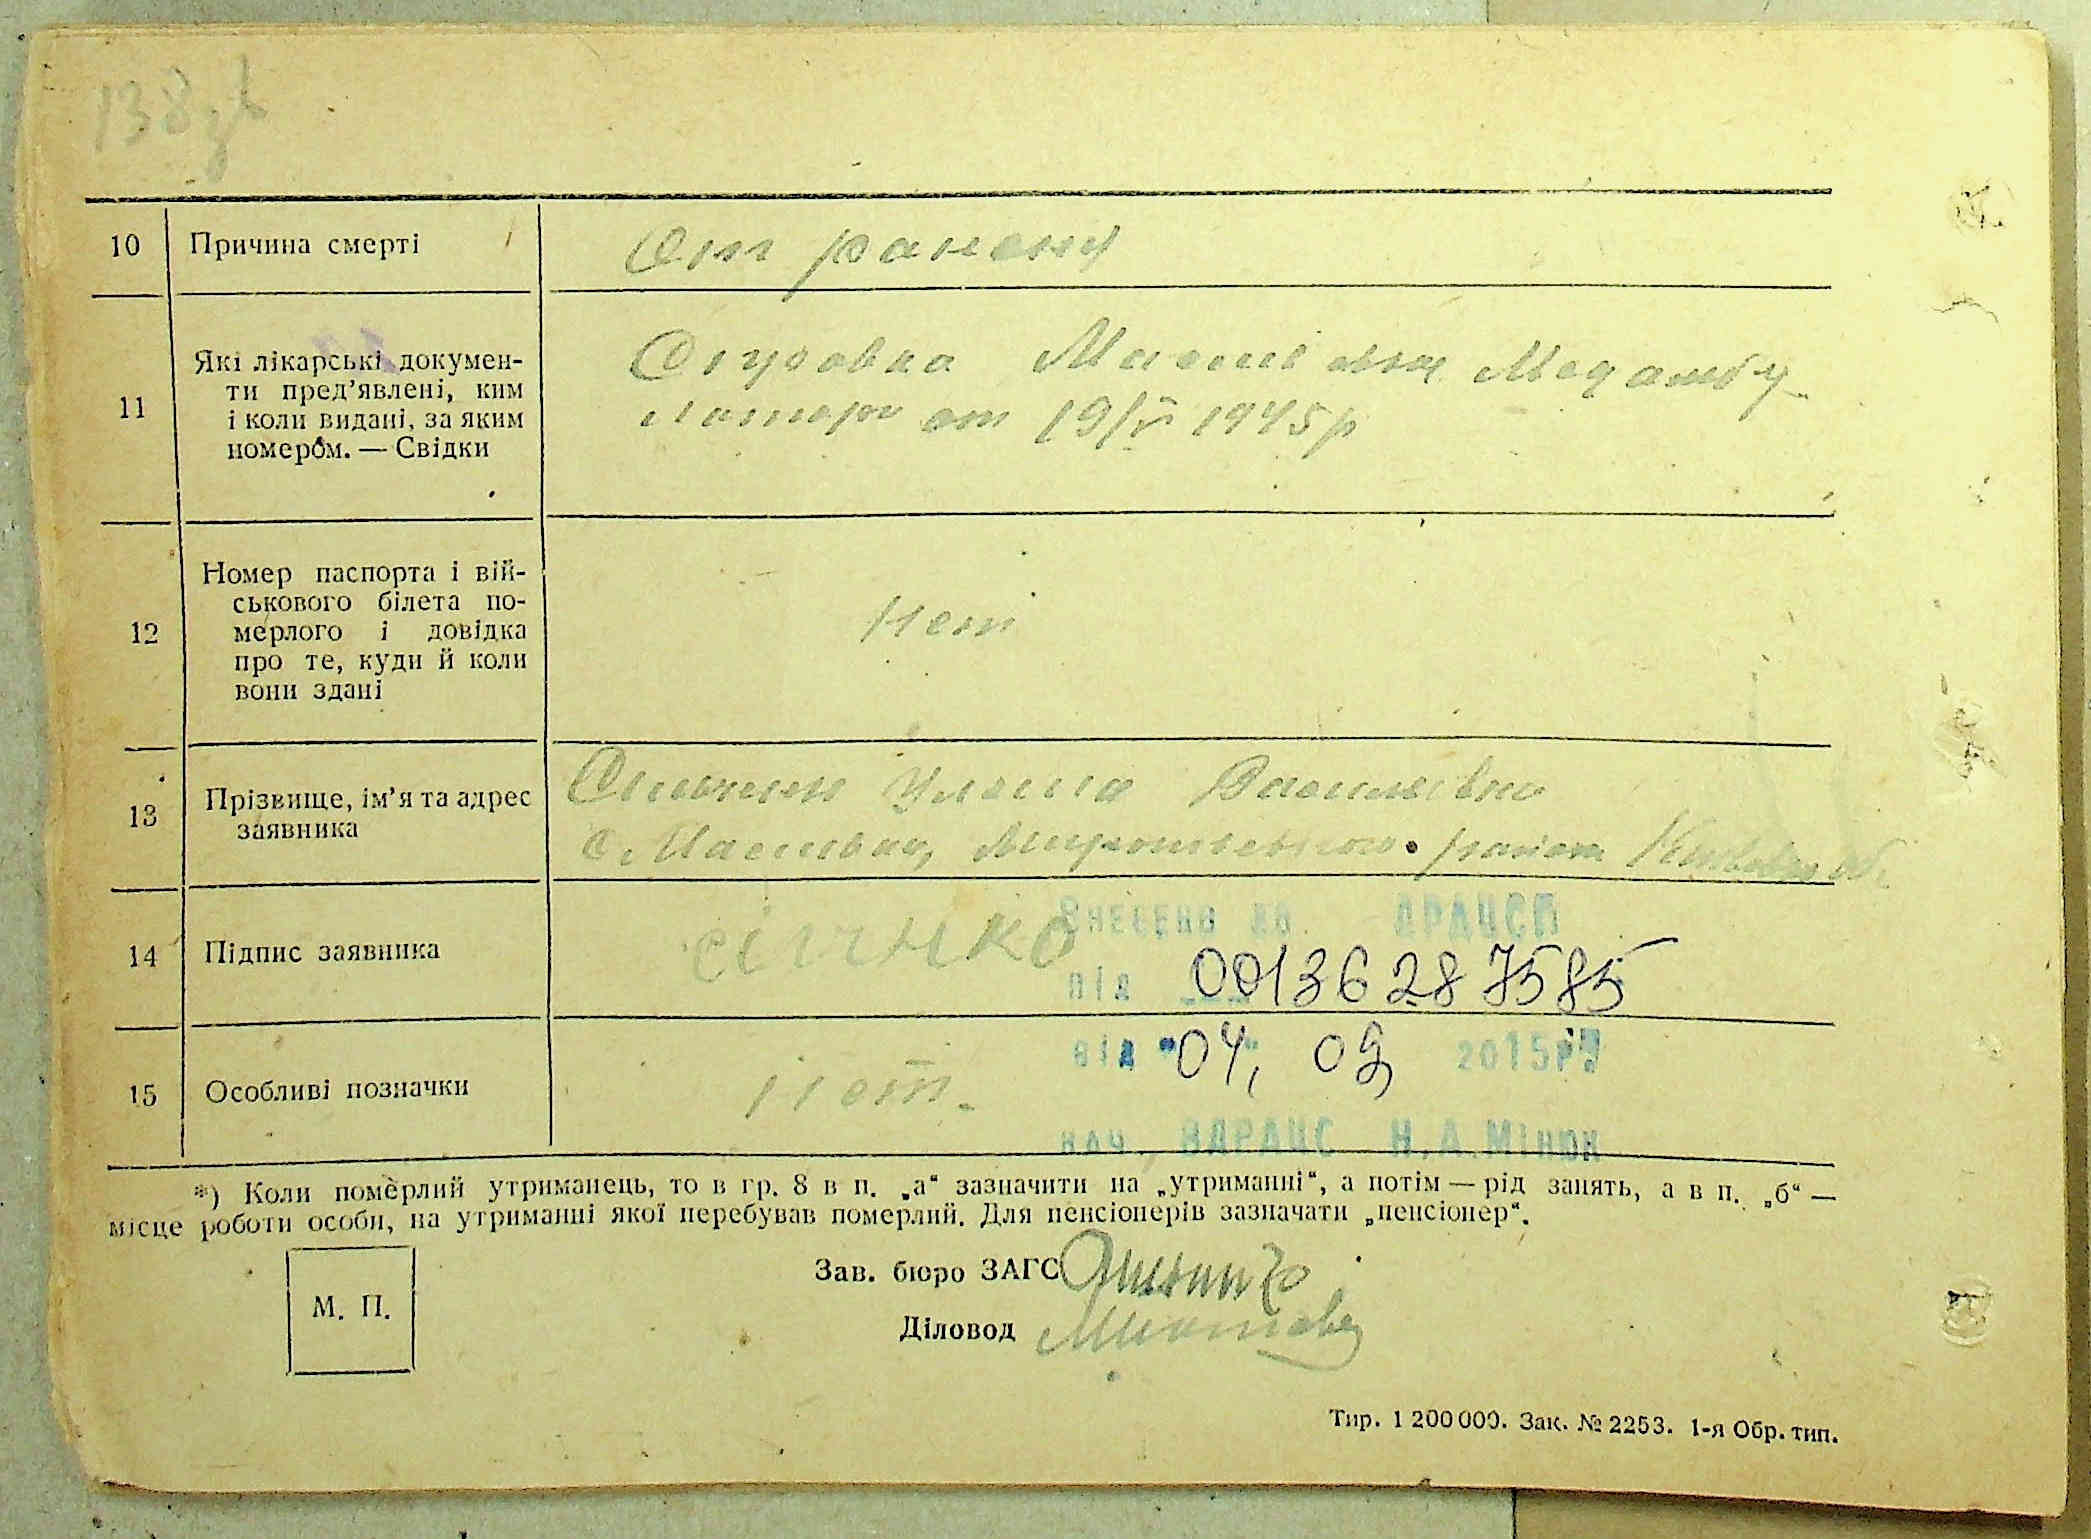 138 зв
10 Причина смерті
От ранены
11 Які лікарські докумен-
ти пред’явлені, ким
і коли видані, за яким
номером. — Свідки
от 19/V 1945р
12 Номер паспорта і вій-
ськового білета по-
мерлого і довідка
про те, куди й коли
вони здані
нет
13 Прізвище, ім’я та адрес
заявника
Уляна Васильівна
с.
14 Підпис заявника
сілчнко
Внесено до ДРАЦСГ
під 00136287585
від "04, 09 2015р"
15 Особливі позначки
нет.
нач. ВДРАЦС Н.А.Мінюк
*) Коли померлий утриманець, то в гр. 8 в п. „а“ зазначити на „утриманні“, а потім — рід занять, а в п. „б“ —
місце роботи особи, на утриманні якої перебував померлий. Для пенсіонерів зазначати „пенсіонер“.
М. П.
Зав. бюро ЗАГС
Діловод
Тир. 1 200 000. Зак. № 2253. 1-я Обр. тип.